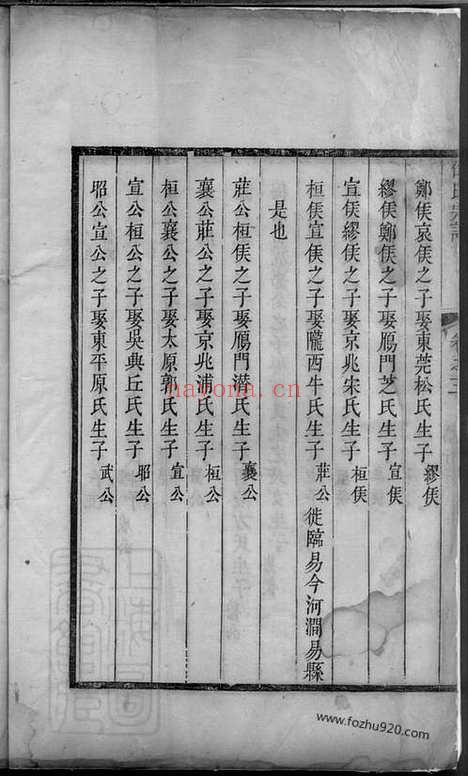 鄭侯哀侯之子娶東莞松氏生子繆侯
繆侯鄭侯之子娶鴈門芝氏生子宣侯
宣侯繆侯之子娶京兆宋氏生子桓侯
桓侯宣侯之子娶隴西牛氏生子莊公徙臨易今河澗易縣
是也
莊公桓侯之子娶鴈門潜氏生子襄公
襄公莊公之子娶京兆浦氏生子桓公
桓公襄公之子娶太原郭氏生子宣公
宣公桓公之子娶吳典丘氏生子昭公
昭公宣公之子娶東平原氏生子武公
nayona.cn
www.fozhu920.com